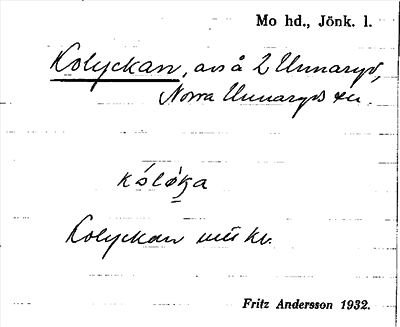 Mo hd., Jönk. l.
Kolyckan, avs å 2 Unnaryd,
Norra Unnaryds sn.
Kolyckan
Fritz Andersson 1932.